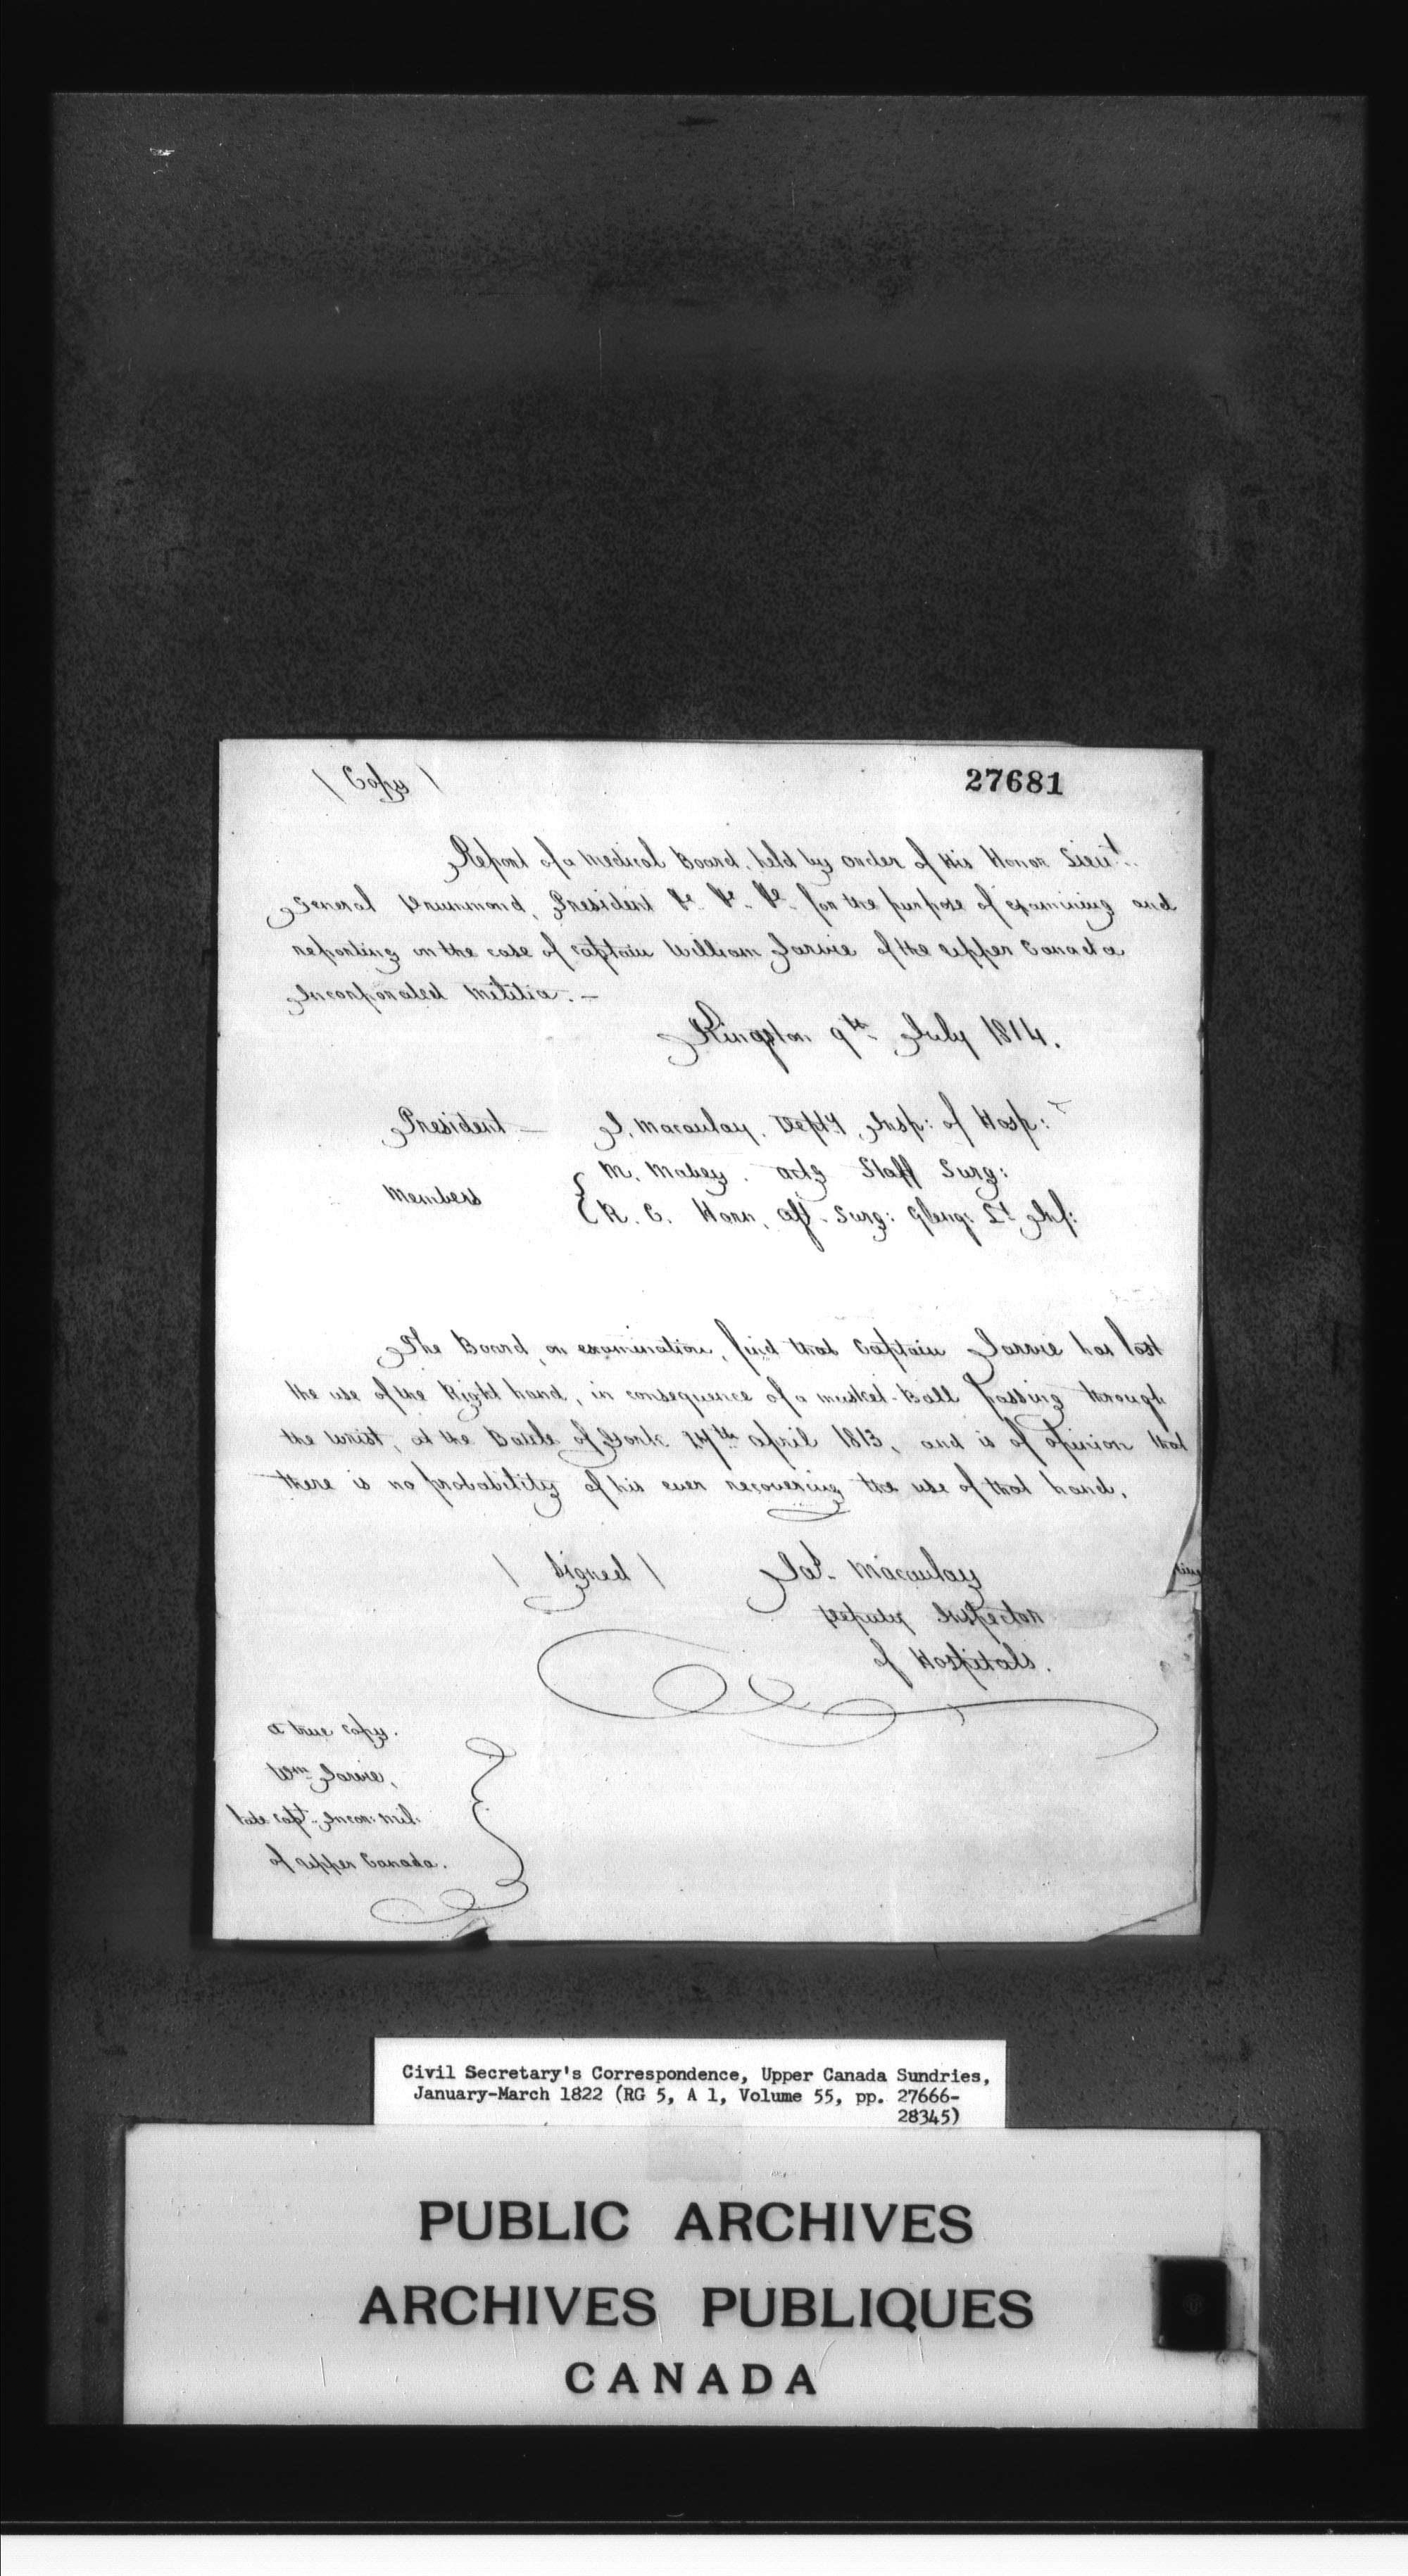 ( Copy )
27681
Report of a Medical Board, held by order of His Honor Lieut.
General Drummond, President &c. &c. &c. for the purpose of examining and
reporting on the case of Captain William Jarvie of the Upper Canada
Incorporated Militia. —
Kingston 9th July 1814.
President — J. Macaulay. Depty. Insp: of Hosp:
M. Mabey. actg Staff Surg:
Members { R. C. Horn, Asst. Surg: Gleng: Lt. Inf:
The Board, on examination, find that Captain Jarvie has lost
the use of the Right hand, in consequence of a musket-Ball passing through
the wrist, at the Battle of York 27th april 1813, and is of opinion that
there is no probability of his ever recovering the use of that hand.
( Signed ) Jas. Macaulay
Deputy Inspector
of Hospitals.
a true copy.
Wm Jarvie,
late capt. Incor: Mil:
of Upper Canada.
Civil Secretary's Correspondence, Upper Canada Sundries,
January-March 1822 (RG 5, A 1, Volume 55, pp. 27666-
28345)
PUBLIC ARCHIVES
ARCHIVES PUBLIQUES
CANADA